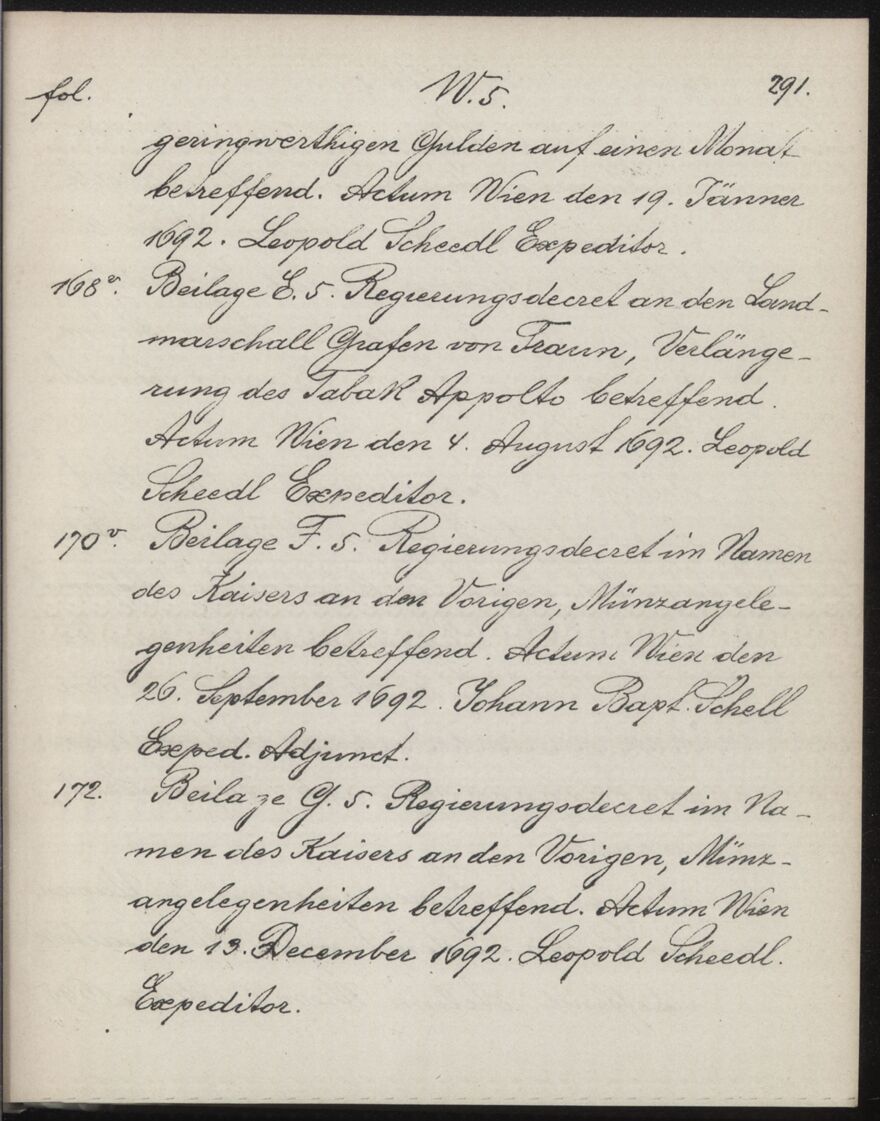 fol. W. 5. 291.
geringwerthigen Gulden auf einen Monat
betreffend. Actum Wien den 19. Jänner
1692. Leopold Scheedl Expeditor.
168v. Beilage E. 5. Regierungsdecret an den Land-
marschall Grafen von Traun, Verlänge-
rung des Tabak Appolto betreffend.
Actum Wien den 4. August 1692. Leopold
Scheedl Expeditor.
170v. Beilage F. 5. Regierungsdecret im Namen
des Kaisers an den Vorigen, Münzangele-
genheiten betreffend. Actum Wien den
26. September 1692. Johann Bapt. Schell
Exped. Adjunct.
172. Beilage G. 5. Regierungsdecret im Na-
men des Kaisers an den Vorigen, Münz-
angelegenheiten betreffend. Actum Wien
den 13. December 1692. Leopold Scheedl.
Expeditor.